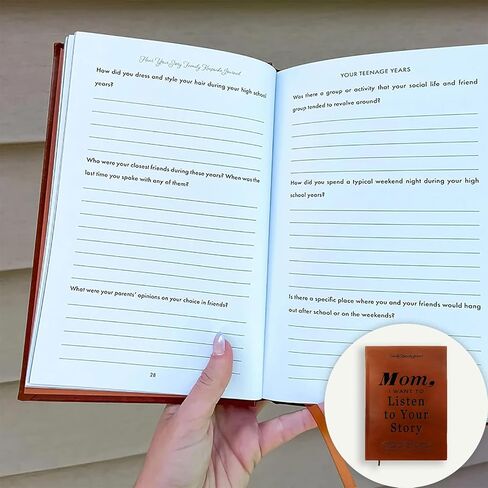 Hear Your Story Family Keepsake Journal
How did you dress and style your hair during your high school
years?
Who were your closest friends during these years? When was the
last time you spoke with any of them?
What were your parents' opinions on your choice in friends?
28
YOUR TEENAGE YEARS
Was there a group or activity that your social life and friend
group tended to revolve around?
How did you spend a typical weekend night during your high
school years?
Is there a specific place where you and your friends would hang
out after school or on the weekends?
Mom,
I WANT TO
Listen
to Your
Story